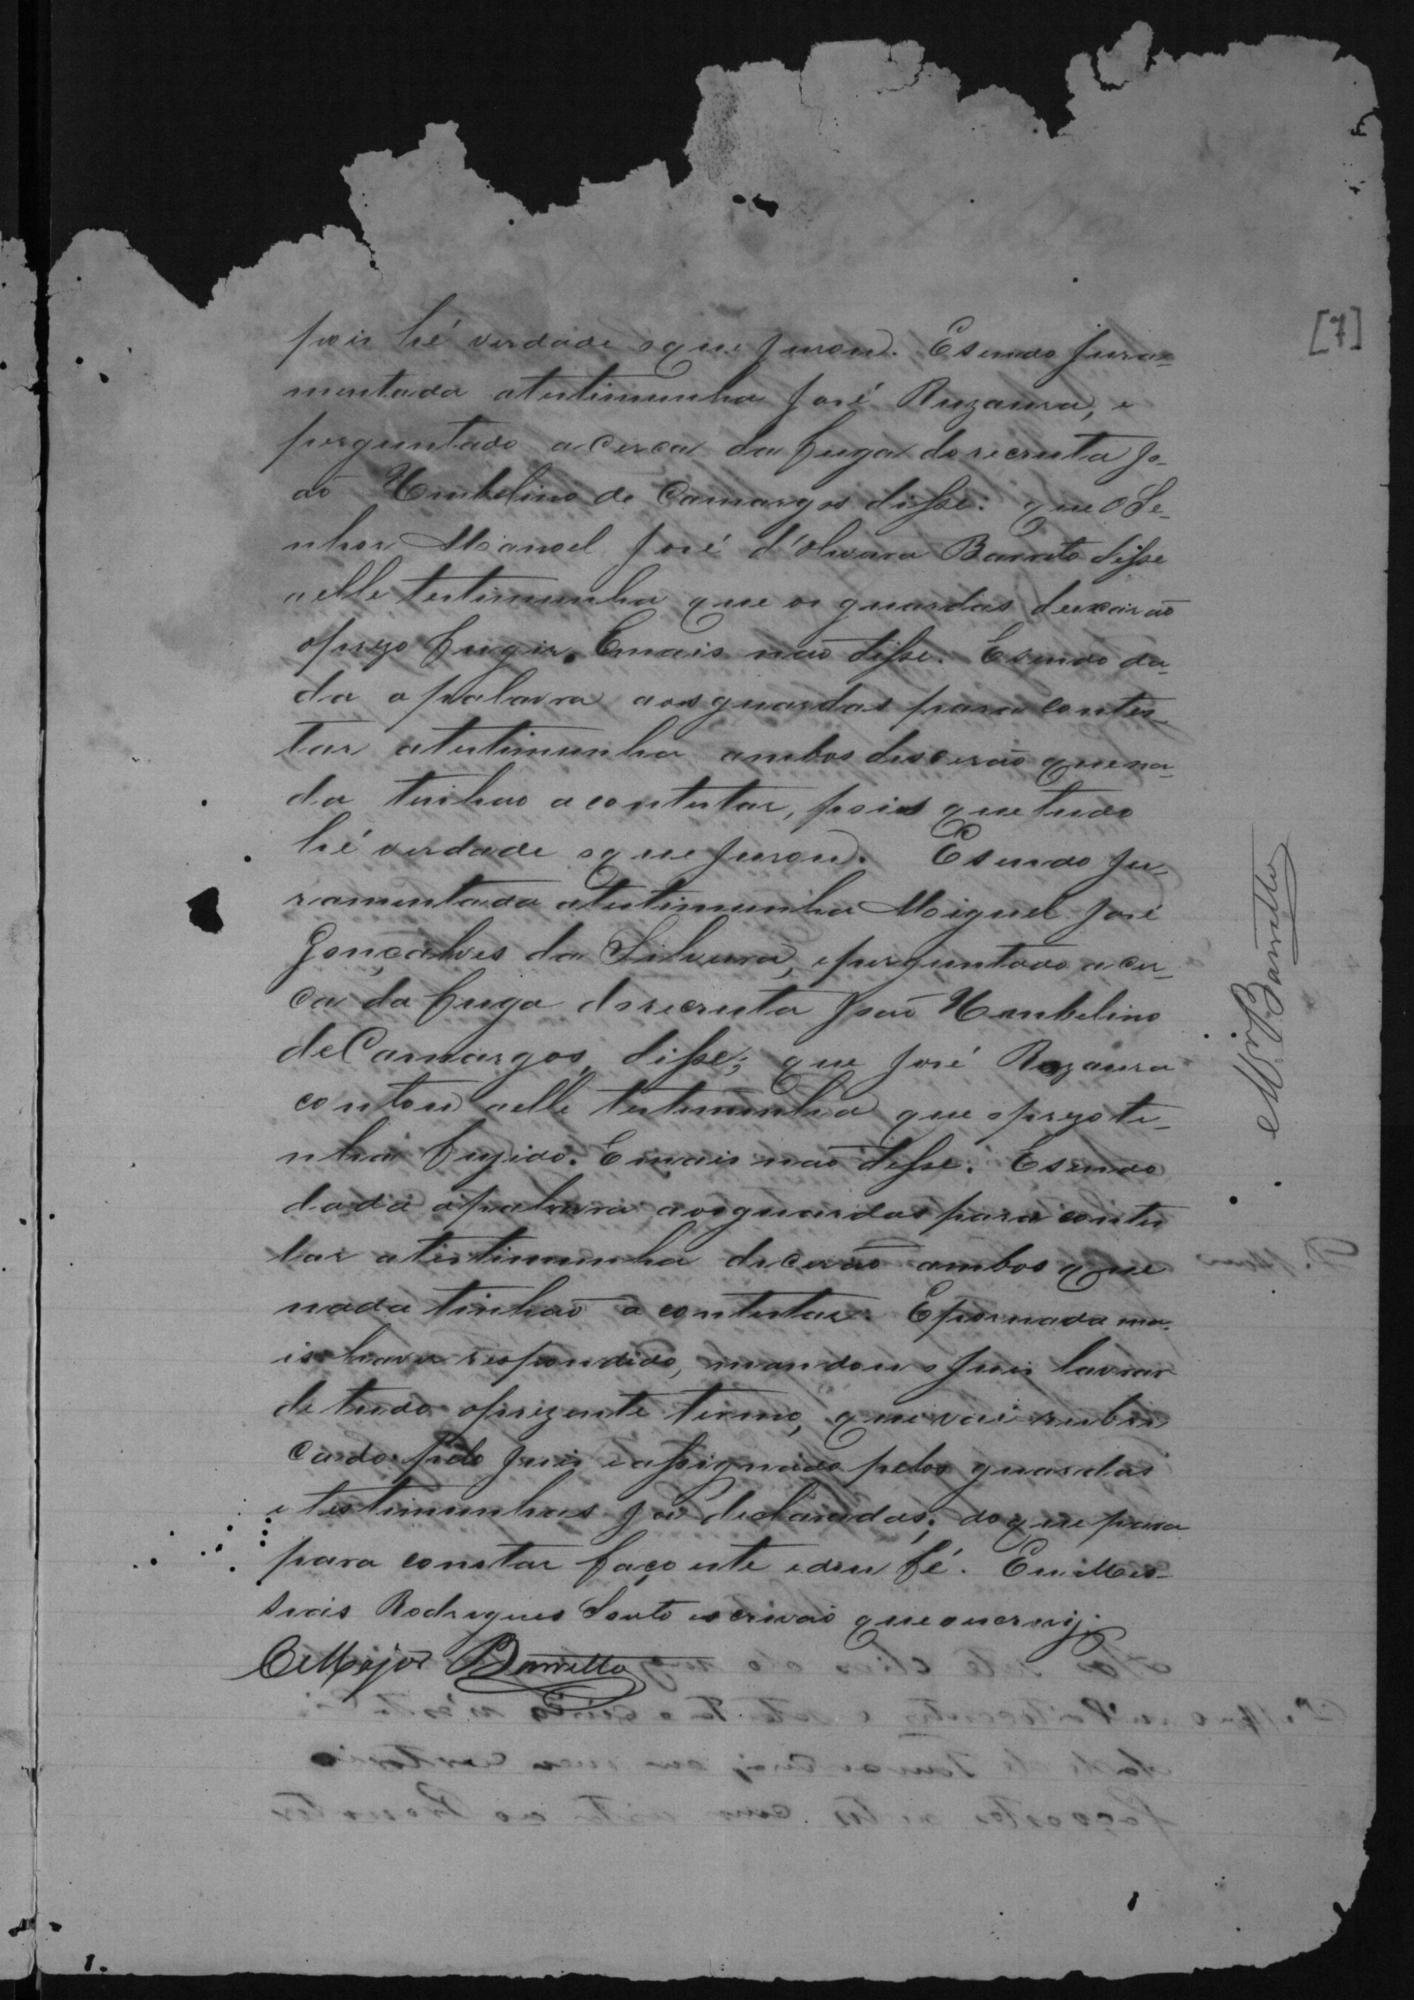 [7]
pois hé verdade o que jurou. E sendo jura-
mentada a testimunha José Ruzaura, e
perguntado a cerca da fuga do recruta Jo-
ão Umbelino de Camargos disse: que o Se-
nhor Manoel José d'Olivara Barreto disse
a elle testimunha que os guardas deixarão
o prezo fugir. E mais não disse. E sendo da-
da a palavra aos guardas para contes-
tar a testimunha ambos discerão que na-
da tinhão a contestar, pois que tudo
hé verdade o que jurou. E sendo ju-
ramentada a testimunha Miguel José
Gonçalves da Silveira, e perguntado a cer-
ca da fuga do recruta João Umbelino
de Camargos, disse; que José Ruzaura
contou a elle testimunha que o prezo ti-
nha fugido. E mais não disse. E sendo
dada a palavra aos guardas para contes
tar a testimunha dicerão ambos que
nada tinhão a contestar. E por nada ma-
is haver respondido, mandou o Juis lavrar
de tudo o prezente termo, que vai rubri
cado pelo Juis e assignado pelos guardas
e testimunhas já declaradas; do que para
para constar faço este e dou fé. Eu Mes-
sias Rodrigues Souto escrivão que o escrevij.
O Major Barretto
M. Barretto